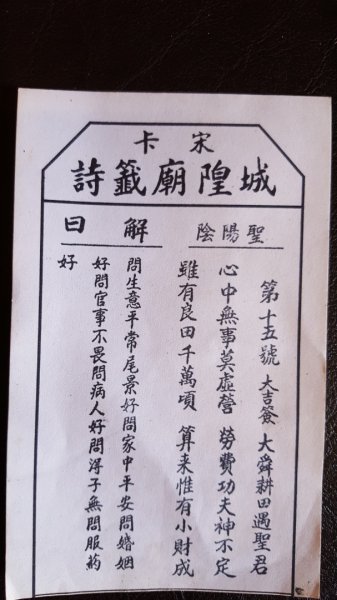 宋卡
城隍廟籤詩
聖陽陰
解曰
第十五號 大吉簽 大舜耕田遇聖君
心中無事莫虛營 勞費功夫神不定
雖有良田千萬頃 算来惟有小財成
問生意平常尾景好問家中平安問婚姻
好問官事不畏問病人好問浮子無問服药
好